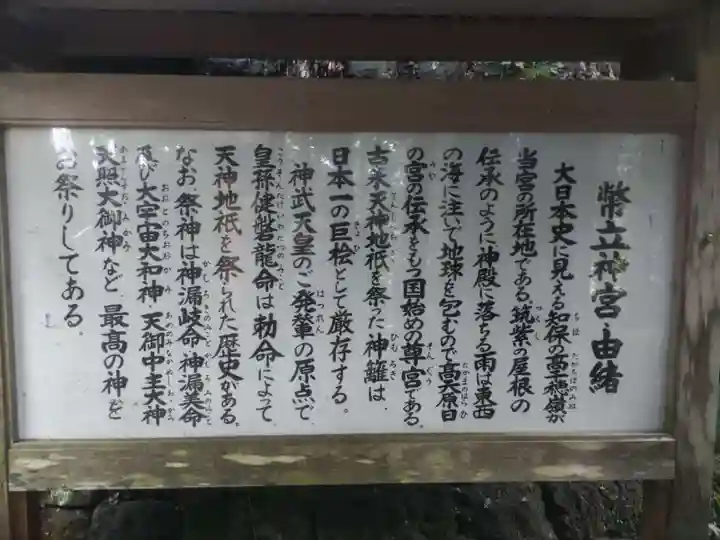 幣立神宮・由緒
大日本史に見える知保の高千穂嶺が
当宮の所在地である。筑紫の屋根の
伝承のように神殿に落ちる雨は東西
の海に注いで地球を包むので高天原日
の宮の伝承をもつ国始めの尊宮である。
古来天神地祇を祭った神籬は、
日本一の巨桧として厳存する。
神武天皇のご発輦の原点で、
皇孫健磐龍命は勅命によって、
天神地祇を祭られた歴史がある。
なお祭神は神漏岐命・神漏美命
及び大宇宙大和神、天御中主大神
天照大御神など、最高の神を
お祭りしてある。